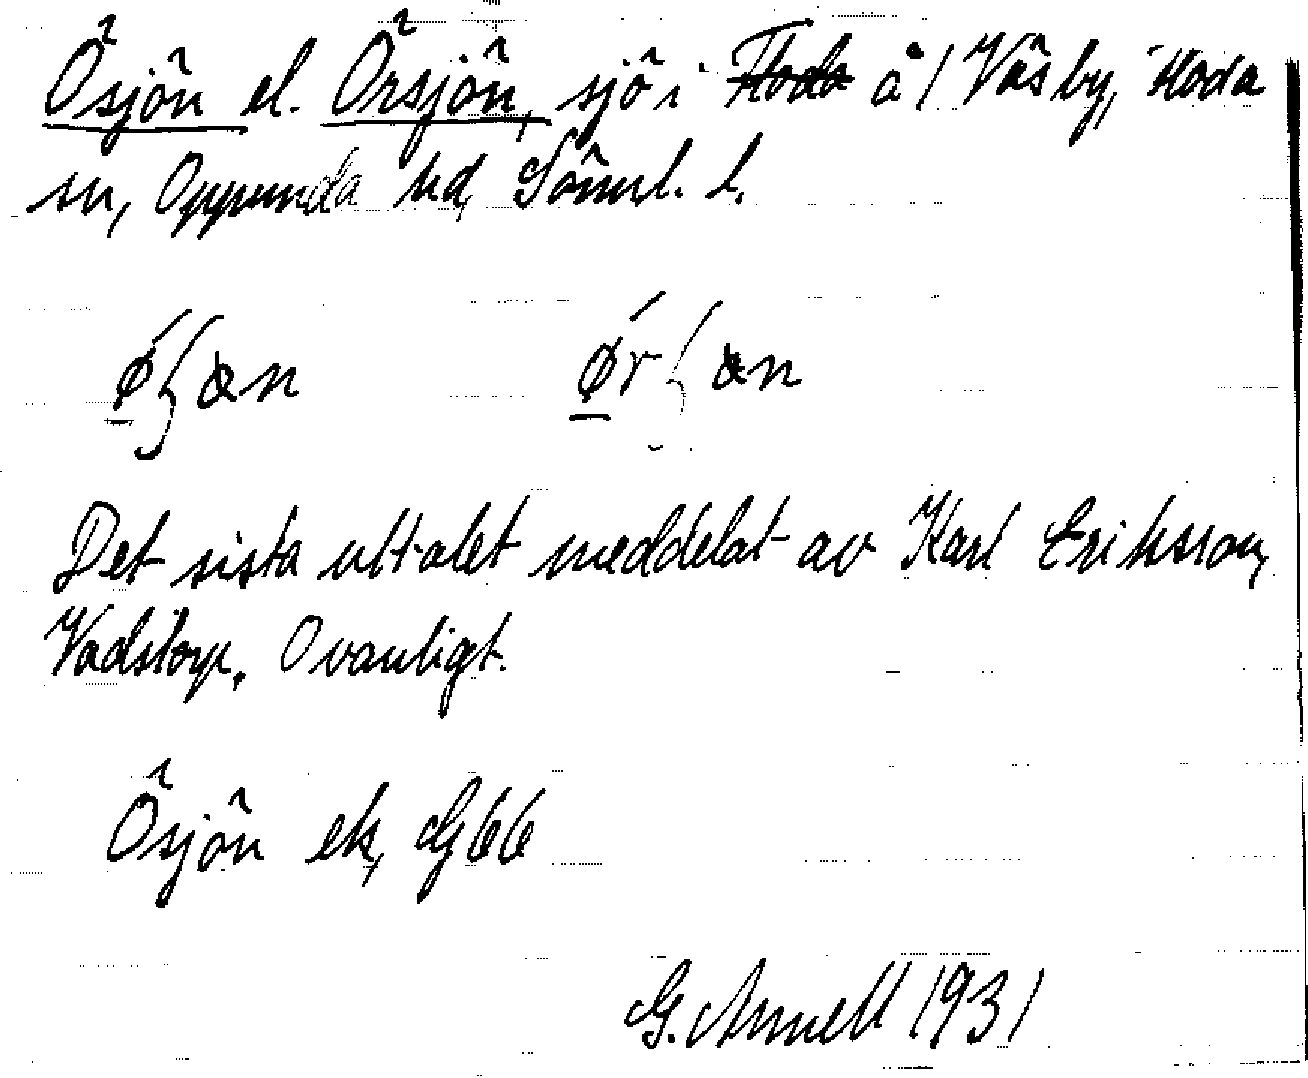 Ösjön el. Örsjön, sjö i ~~Floda~~ å 1 Väsby, Floda
sn, Oppunda hd, Sörml. l.
Det sista uttalet meddelat av Karl Eriksson,
Vadstorp. Ovanligt.
Ösjön ek, G66
G. Annell 1931